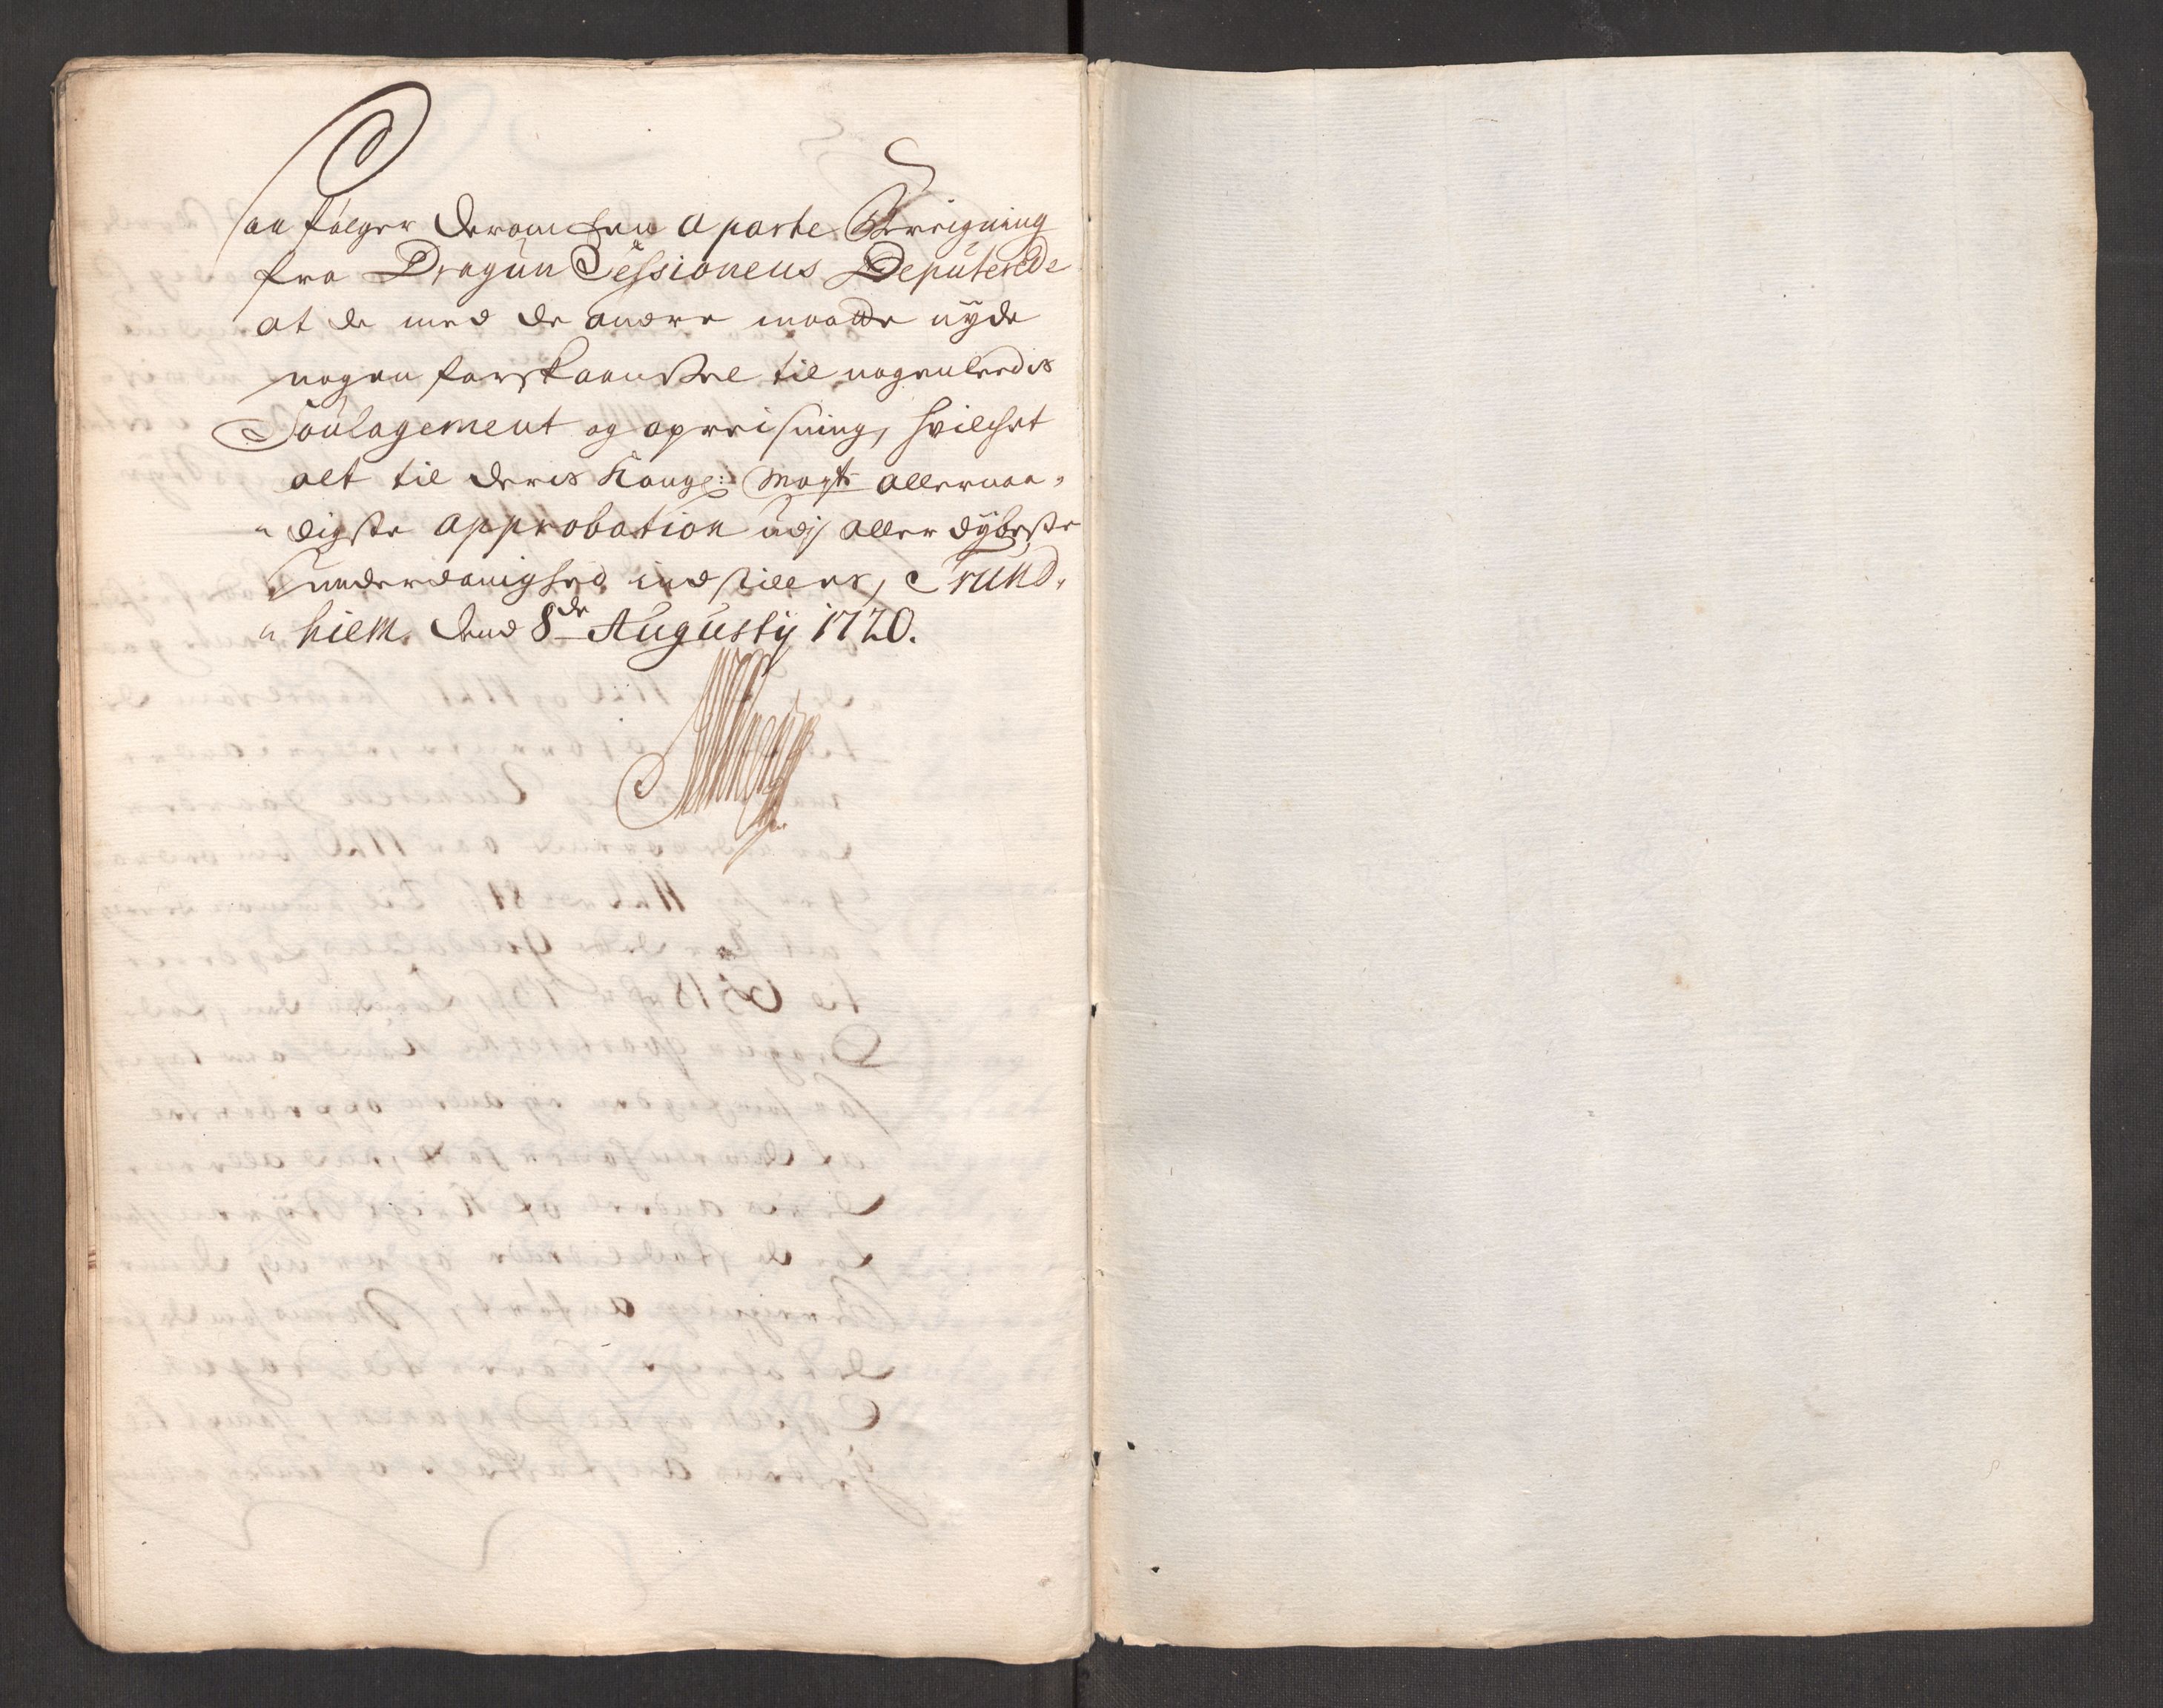 saa følger derom her aparte Bereigning
fra Dragun Sessionens Deputerede
at de med de andre maatte nyde
nogen forskaanssel til nogenledis
Soulagement og opreisning, hvilchet
alt til deris Kongl: Mayts allernaa-
digste approbation udj aller dybeste
underdanighed indstilles, Trund-
hiem. dend 8de Augustij 1720.